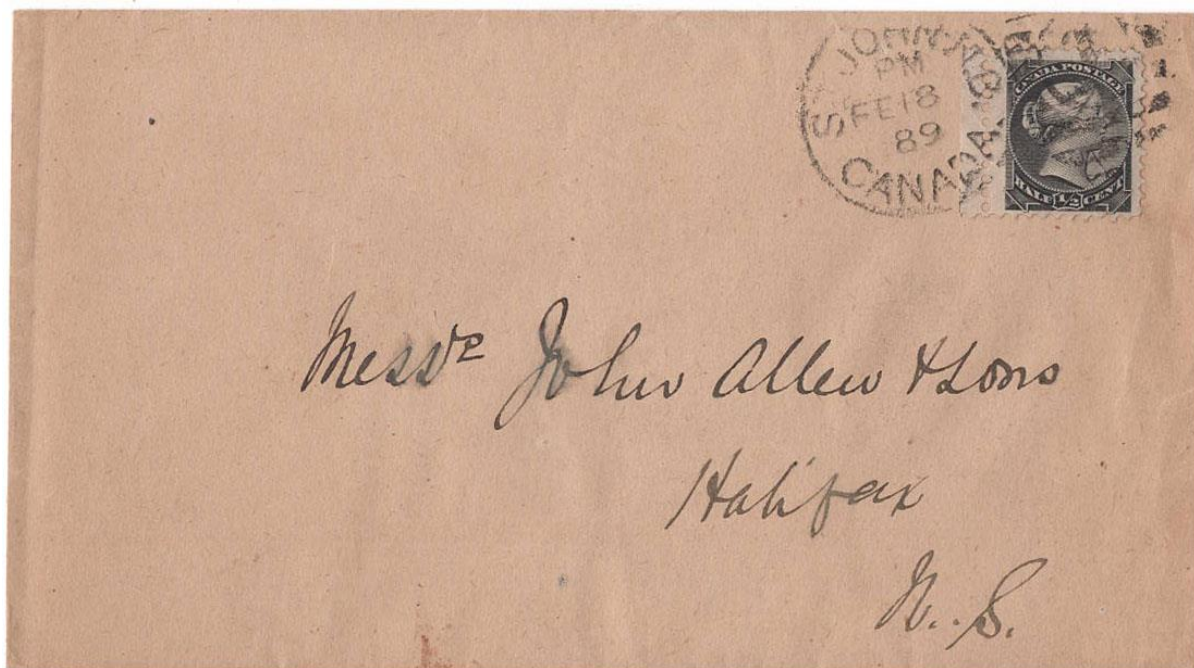 ST. JOHN, N.B.
PM
FE 18
89
CANADA
CANADA POSTAGE
HALF ½ CENT
Messrs John Allen & Sons
Halifax
N.S.